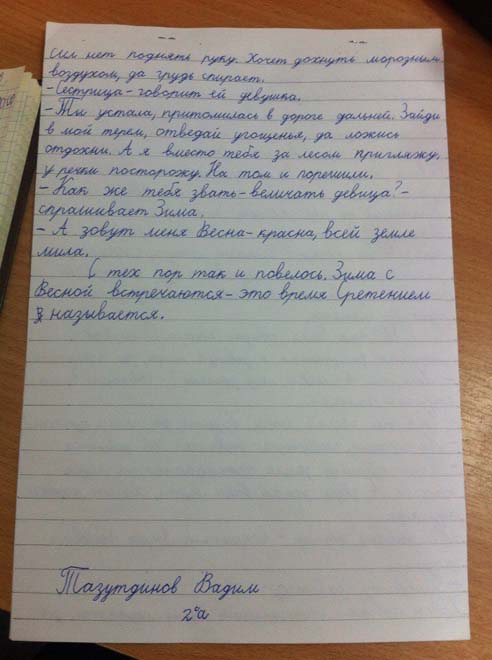 сил нет поднять руку. Хочет дохнуть морозным
воздухом, да грудь спирает.
- Сестрица - говорит ей девушка.
- Ты устала, притомилась в дороге дальней. Зайди
в мой терем, отведай угощенья, да ложись
отдохни. А я вместо тебя за лесом пригляжу,
у речки посторожу. На том и порешили.
- Как же тебя звать-величать девица? -
спрашивает Зима.
- А зовут меня Весна-красна, всей земле
мила.
С тех пор так и повелось. Зима с
Весной встречаются - это время Сретением
называется.
Тазутдинов Вадим
2"а